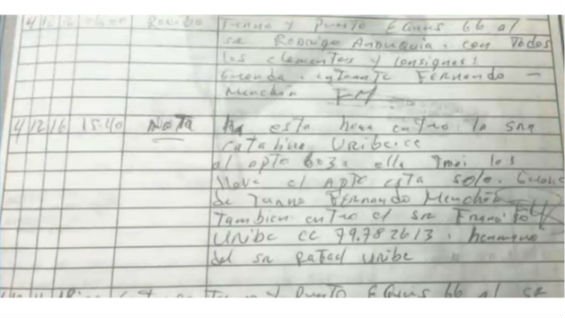 4/12/16 Recibo Turno y Puesto Equus 66 al
sr Rodrigo Anduquia. con todos
los elementos y consignas
Guarda. entrante Fernando –
Menchón FM
4/12/16 15:40 NOTA A esta hora entro la sra
Catalina Uribe. cc
al apto 603. ella las
lleva el apto esta solo. Guarda
de Turno Fernando Menchón
Tambien entro el sr Francisco
Uribe cc 79.782613. hermano
del sr Rafael Uribe
Turno y Puesto Equus 66 al sr